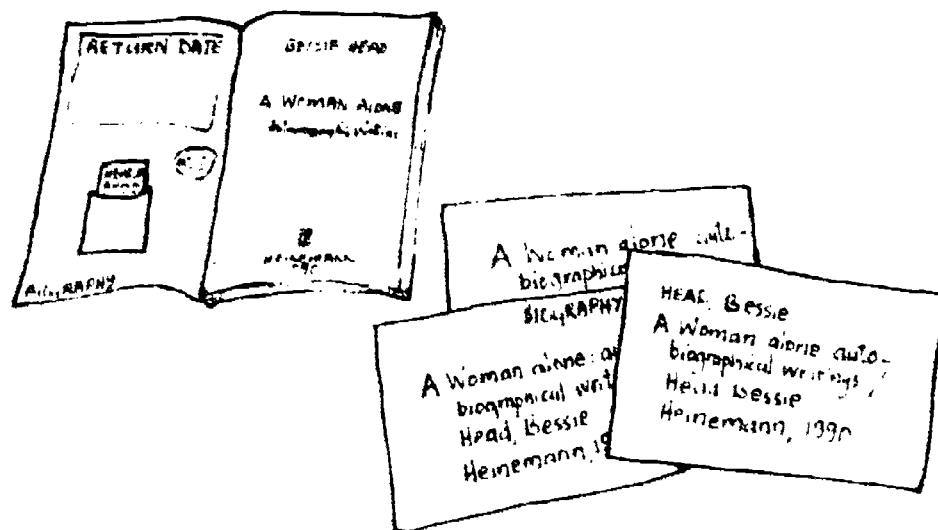 RETURN DATE
BIOGRAPHY
BESSIE HEAD
A WOMAN ALONE
HEINEMANN
A Woman alone auto-
biographical
BIOGRAPHY
A Woman alone: au
biographical writ
Head, Bessie
Heinemann, 19
HEAD, Bessie
A Woman alone auto-
biographical writings /
Head Bessie
Heinemann, 1990